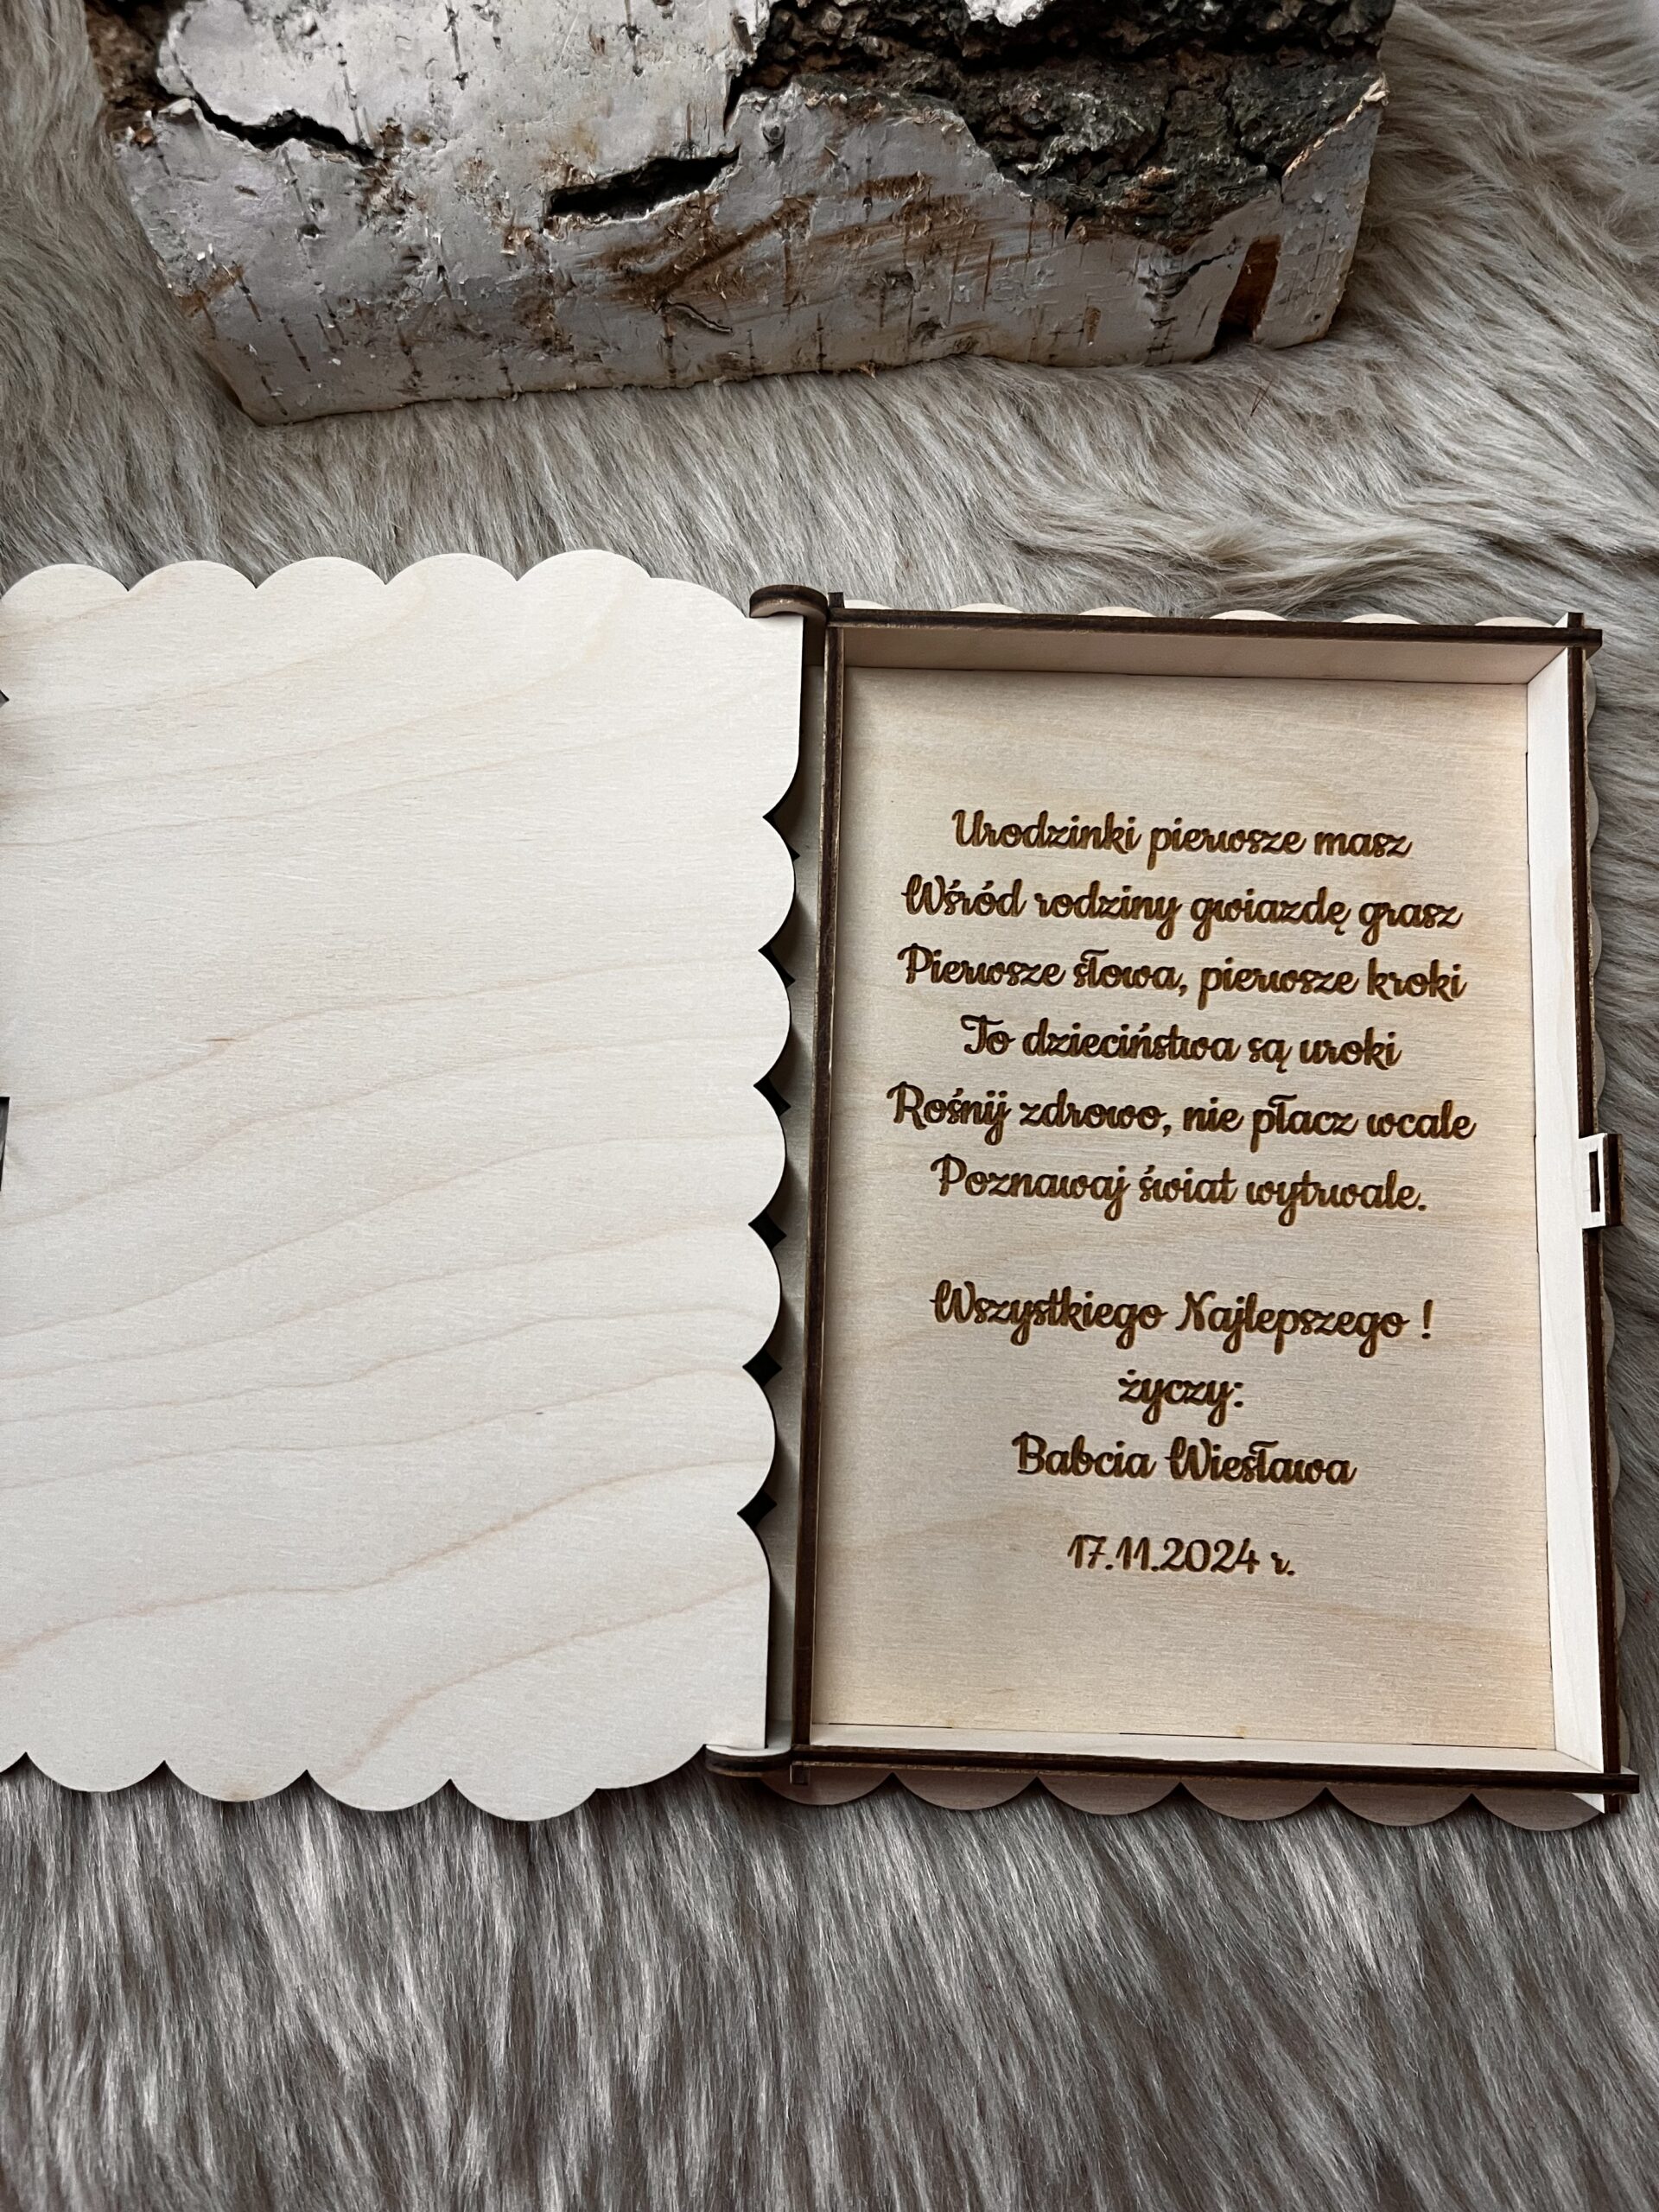 Urodzinki pierwsze masz
Wśród rodziny gwiazdę grasz
Pierwsze słowa, pierwsze kroki
To dzieciństwa są uroki
Rośnij zdrowo, nie płacz wcale
Poznawaj świat wytrwale.
Wszystkiego Najlepszego !
życzy:
Babcia Wiesława
17.11.2024 r.